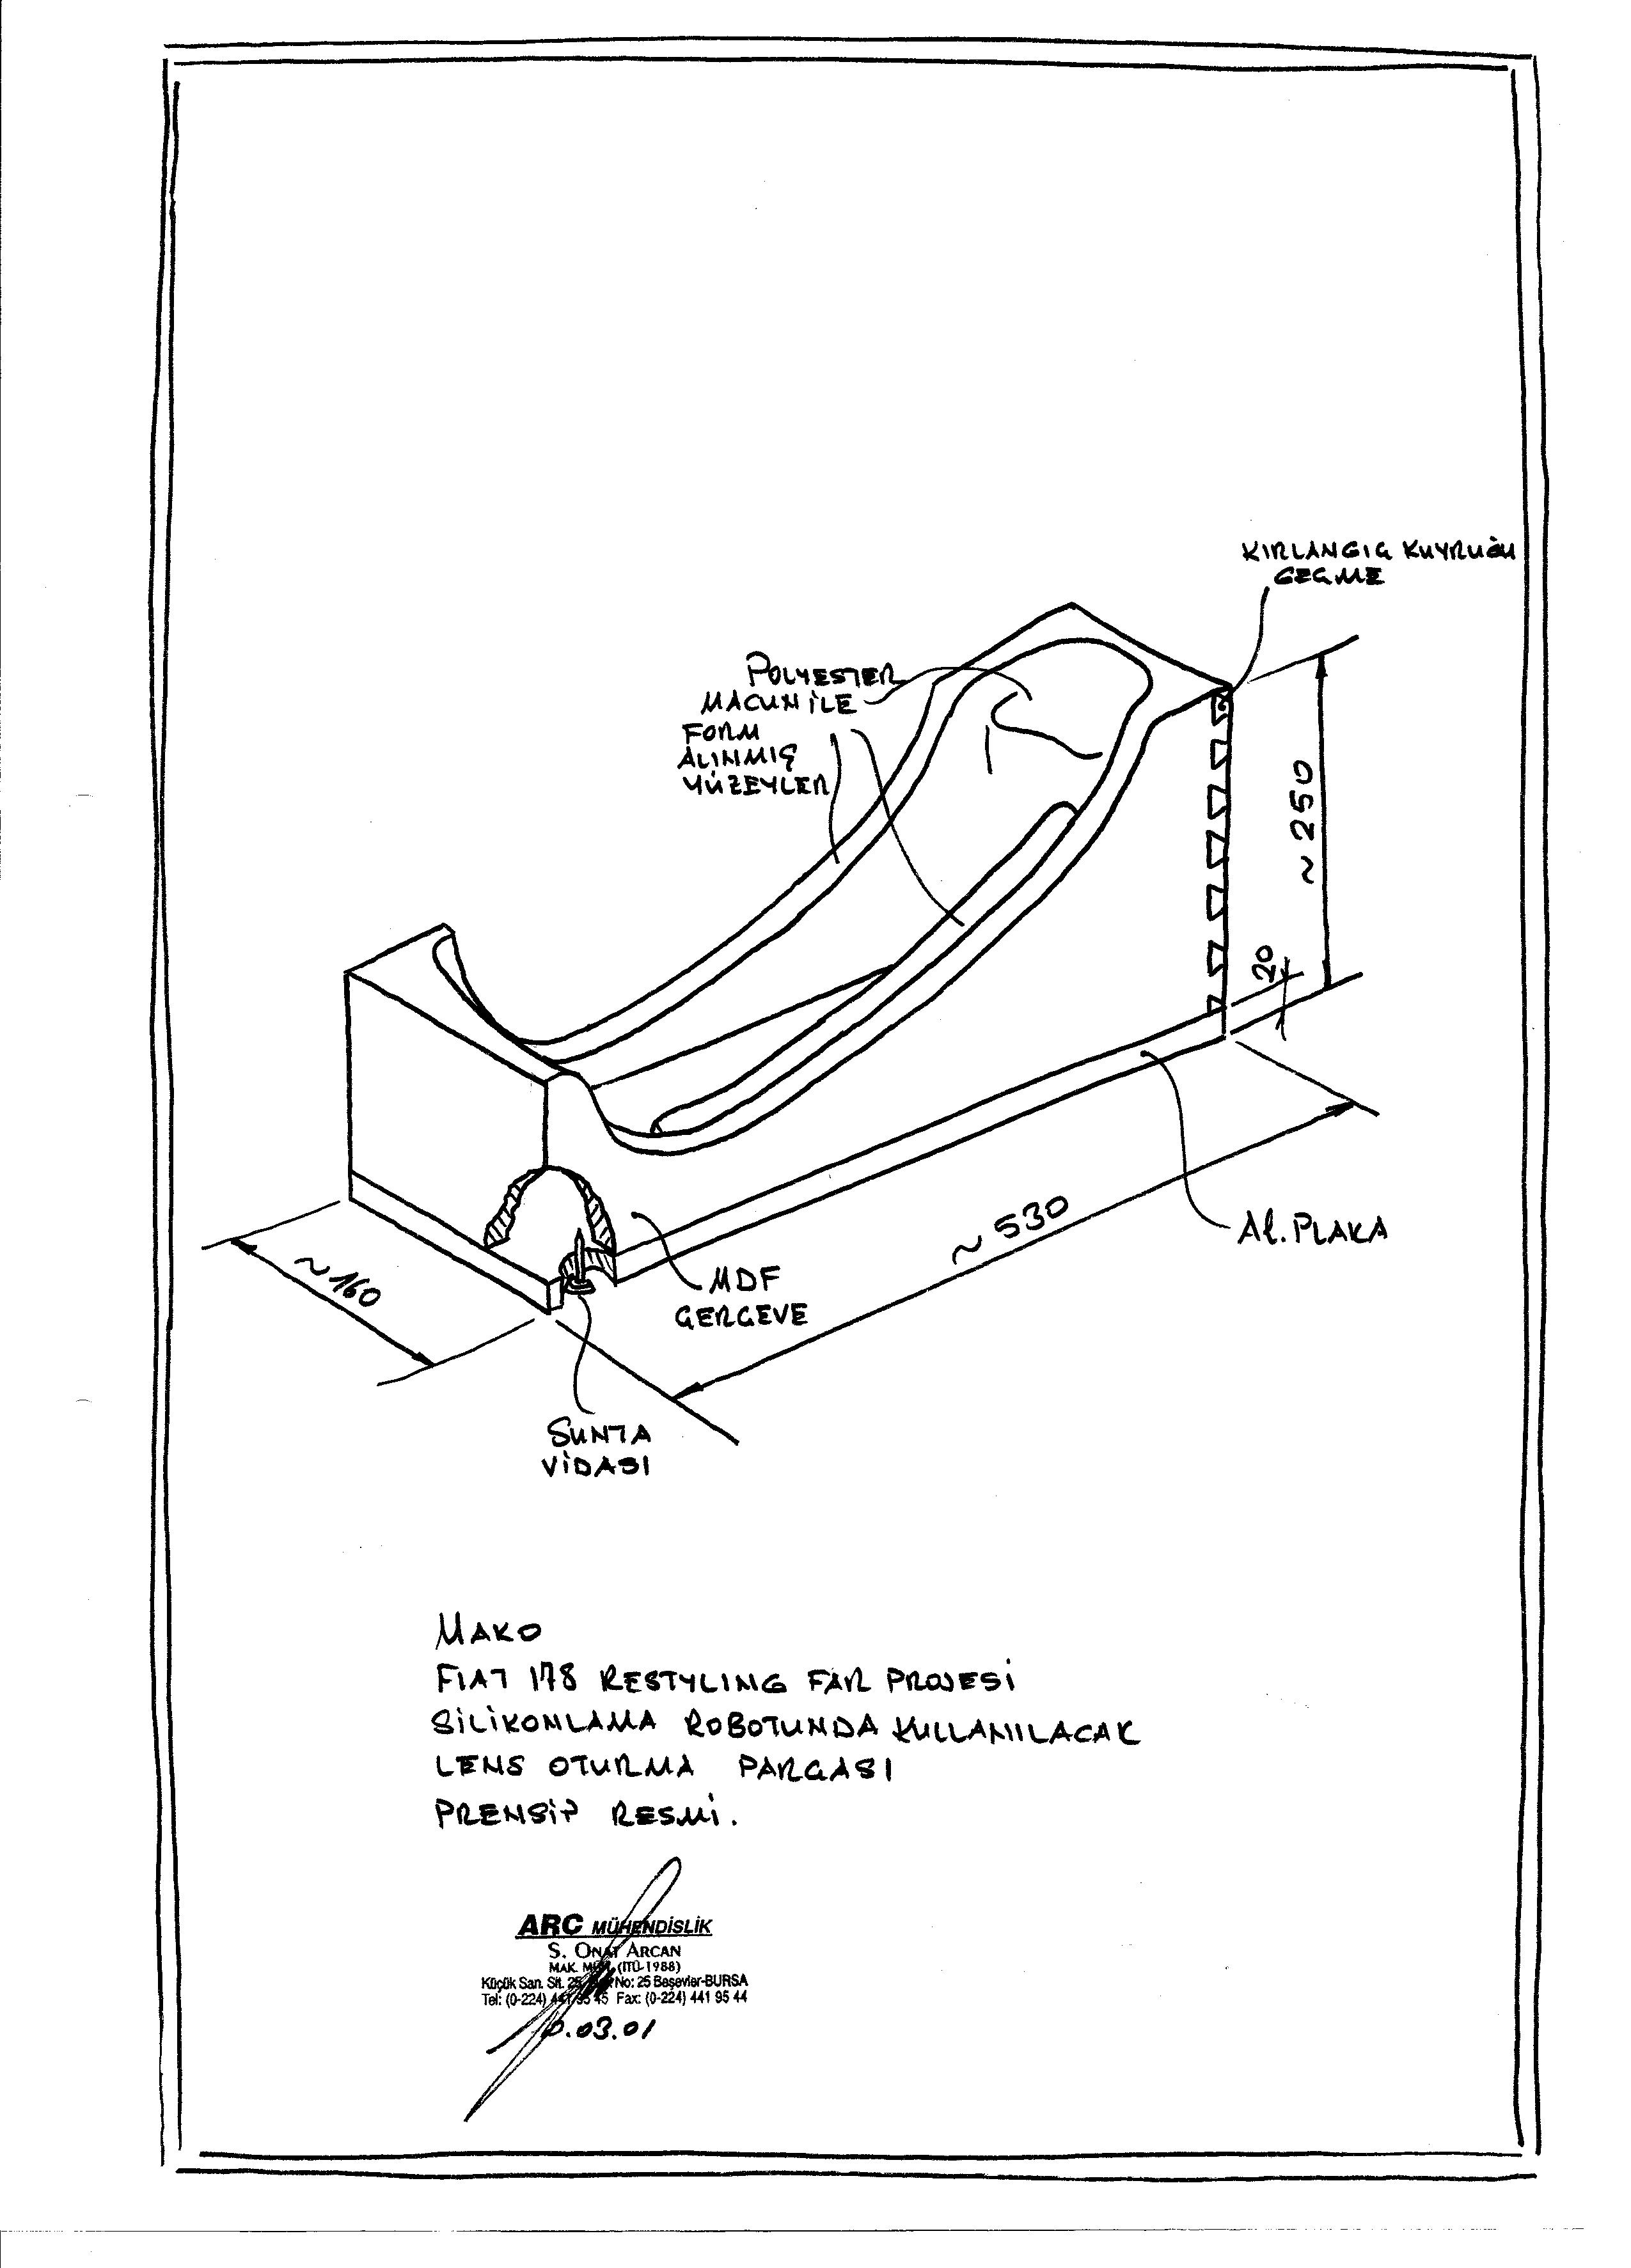 KIRLANGIÇ KUYRUĞU
GEÇME
POLYESTER
MACUN İLE
FORM
ALINMIŞ
YÜZEYLER
~250
20
~530
~160
AL. PLAKA
MDF
ÇERÇEVE
SUNTA
VİDASI
MAKO
FIAT 178 RESTYLING FAR PROJESİ
SİLİKONLAMA ROBOTUNDA KULLANILACAK
LENS OTURMA PARÇASI
PRENSİP RESMİ.
ARC MÜHENDİSLİK
S. ONAT ARCAN
MAK. (İTÜ-1988)
Küçük San. Sit. 25. No: 25 Beşevler-BURSA
Tel: (0-224) 441 95 45 Fax: (0-224) 441 95 44
.03.01